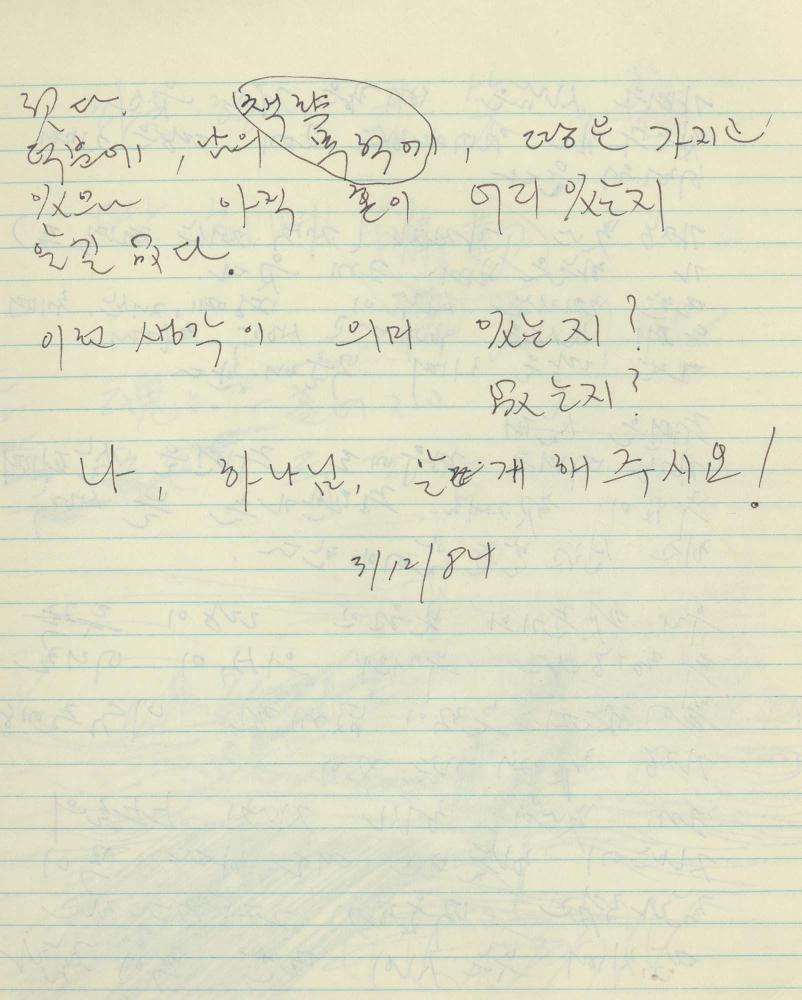 렀다.
덕분에, 남의 책략 폭력에, 땅은 가지고
있으나 아직 혼이 어리 있는지
알길 없다.
이런 생각이 의미 있는지?
없는지?
나, 하나님, 알게 해 주시요!
3/12/84